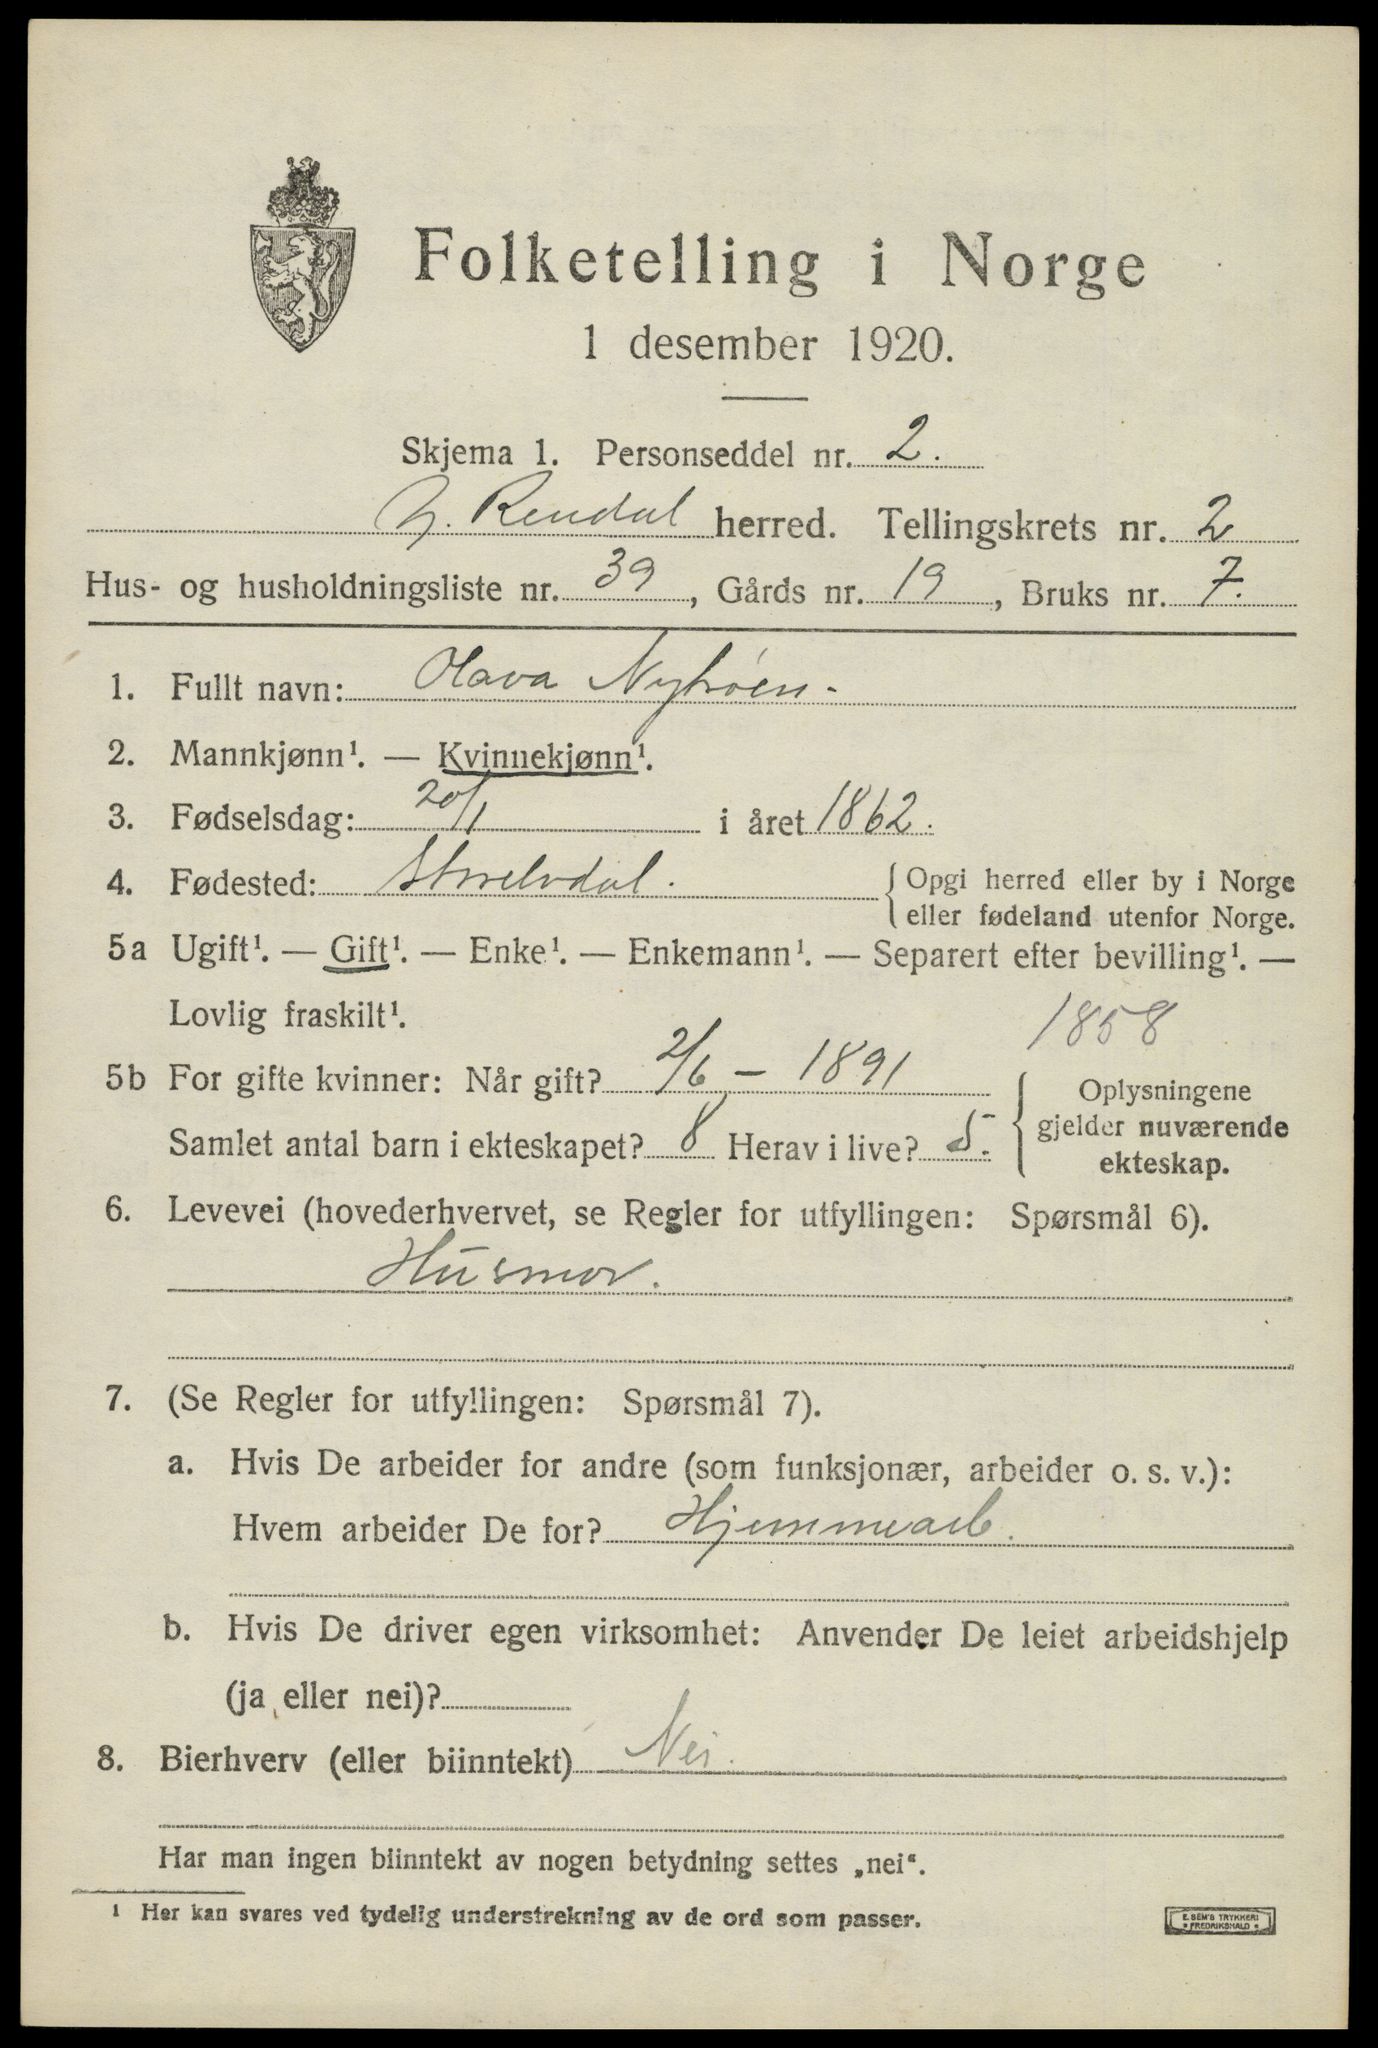 Folketelling i Norge
1 desember 1920.
Skjema 1. Personseddel nr. 2.
Y. Rendal herred. Tellingskrets nr. 2
Hus- og husholdningsliste nr. 39, Gårds nr. 19, Bruks nr. 7.
1. Fullt navn: Olava Nytrøen.
2. Mannkjønn¹. — Kvinnekjønn¹.
3. Fødselsdag: 20/1 i året 1862.
4. Fødested: Storelvdal. { Opgi herred eller by i Norge
eller fødeland utenfor Norge.
5a Ugift¹. — Gift¹. — Enke¹. — Enkemann¹. — Separert efter bevilling¹. —
Lovlig fraskilt¹.
1858
5b For gifte kvinner: Når gift? 2/6 - 1891
Samlet antal barn i ekteskapet? 8 Herav i live? 5.
{ Oplysningene
gjelder nuværende
ekteskap.
6. Levevei (hovederhvervet, se Regler for utfyllingen: Spørsmål 6).
Husmor.
7. (Se Regler for utfyllingen: Spørsmål 7).
a. Hvis De arbeider for andre (som funksjonær, arbeider o. s. v.):
Hvem arbeider De for? Hjemmearb.
b. Hvis De driver egen virksomhet: Anvender De leiet arbeidshjelp
(ja eller nei)?
8. Bierhverv (eller biinntekt) Nei.
Har man ingen biinntekt av nogen betydning settes „nei“.
¹ Her kan svares ved tydelig understrekning av de ord som passer.
E. SEM'S TRYKKERI
FREDRIKSHALD